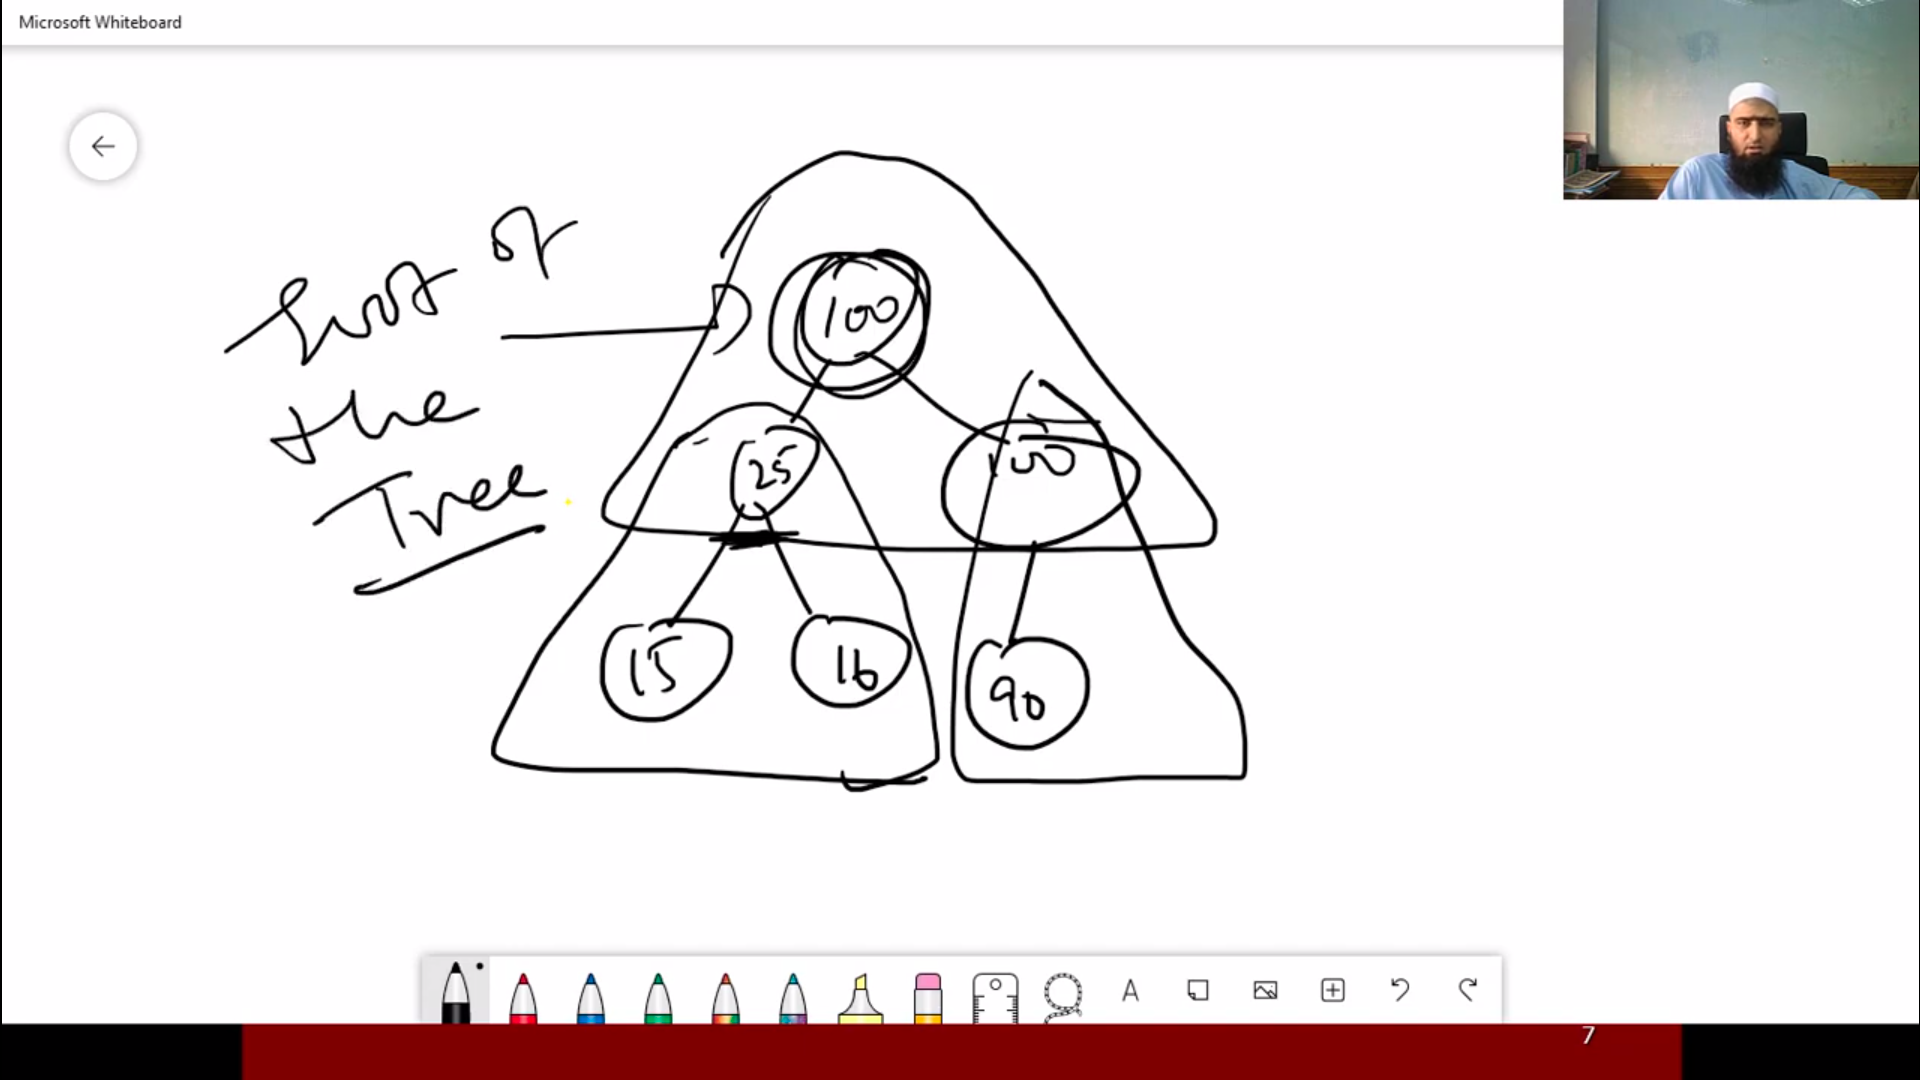 Microsoft Whiteboard
root of
the
Tree
100
25
100
15
16
90
A
7